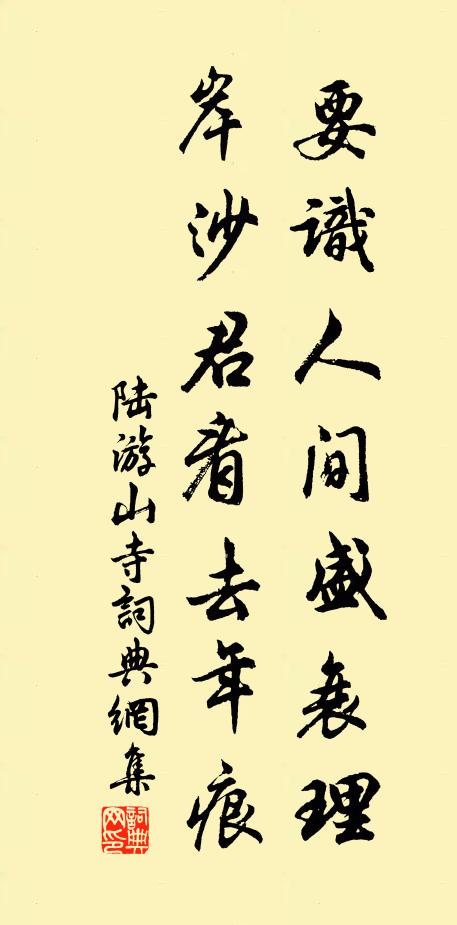 要識人間盛衰理
岸沙君看去年痕
陆游山寺詞典網集
詞典网印